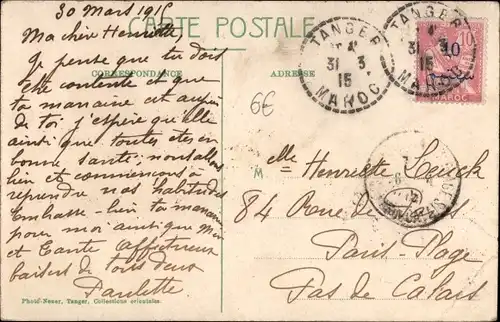 30 Mars 1915
CARTE POSTALE
Ma chère Henriette
Je pense que tu dois
CORRESPONDANCE
ADRESSE
être contente et que
ta maraine est auprès
de toi j'espère qu'elle
ainsi que toutes êtes en
bonne santé, nous allons
bien et commençons à
reprendre nos habitudes
Embrasse-bien ta maraine
pour moi ainsi que Mère
et Tante Affectueux
baisers de tous deux
Paulette
Photo-Neuer, Tanger, Collections orientales.
TANGER
31 3
15
MAROC
TANGER
31 3
15
MAROC
10
10
MAROC
6€
M elle Henriette
84 Rue de
Paris-Plage
Pas de Calais